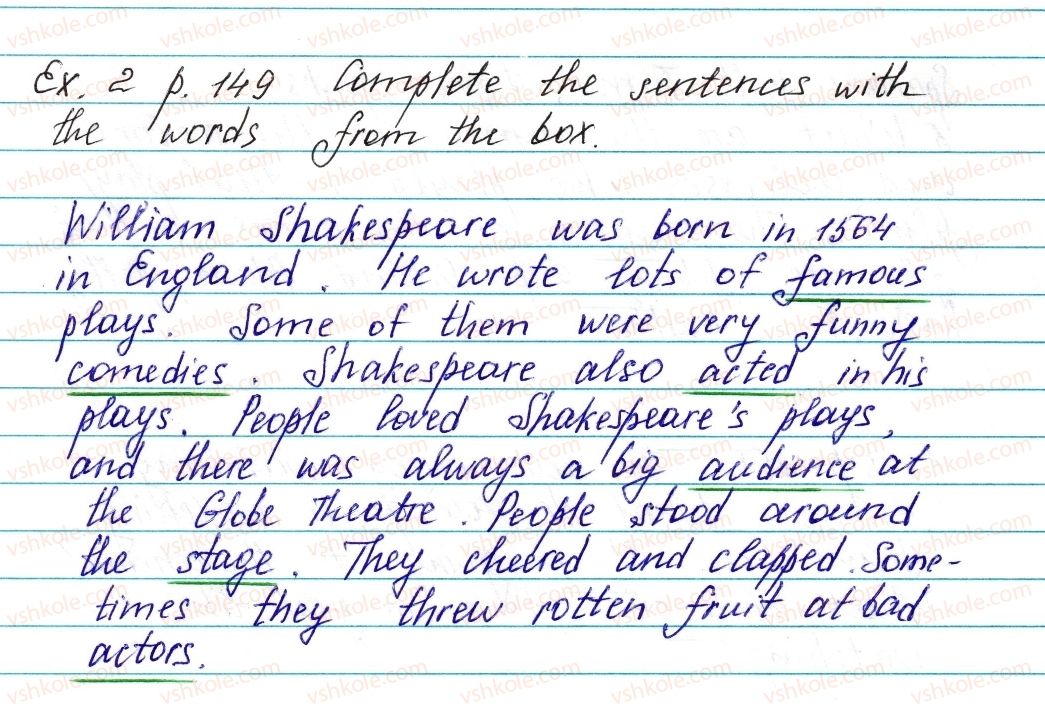 Ex. 2 p. 149 Complete the sentences with
the words from the box.
William Shakespeare was born in 1564
in England. He wrote lots of famous
plays. Some of them were very funny
comedies. Shakespeare also acted in his
plays. People loved Shakespeare's plays,
and there was always a big audience at
the Globe Theatre. People stood around
the stage. They cheered and clapped. Some-
times they threw rotten fruit at bad
actors.